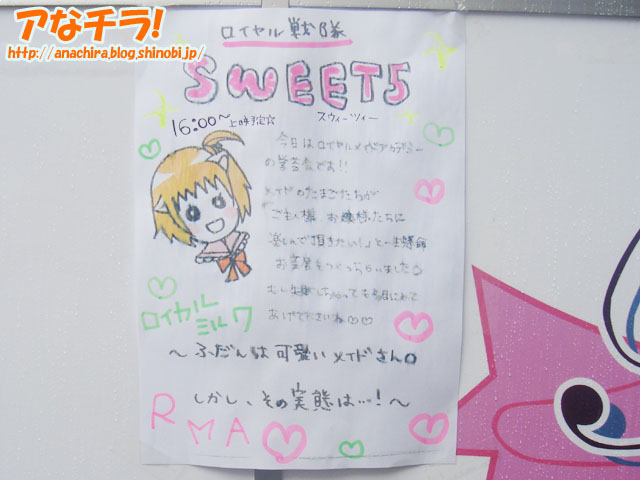 アなチラ!
http://anachira.blog.shinobi.jp/
ロイヤル戦隊
SWEET5
スウィーツィー
16:00〜上映予定☆
今日はロイヤルメイドアカデミー
の学芸会です!!
メイドのたまごたちが
「ご主人様、お嬢様たちに
楽しんで頂きたい!」と一生懸命
お芝居をつくっちゃいました
もし失敗しちゃっても多目にみて
あげてくださいね♡♡
ロイヤル
ミルク
〜ふだんは可愛いメイドさん。
しかし、その実態は…!〜
RMA